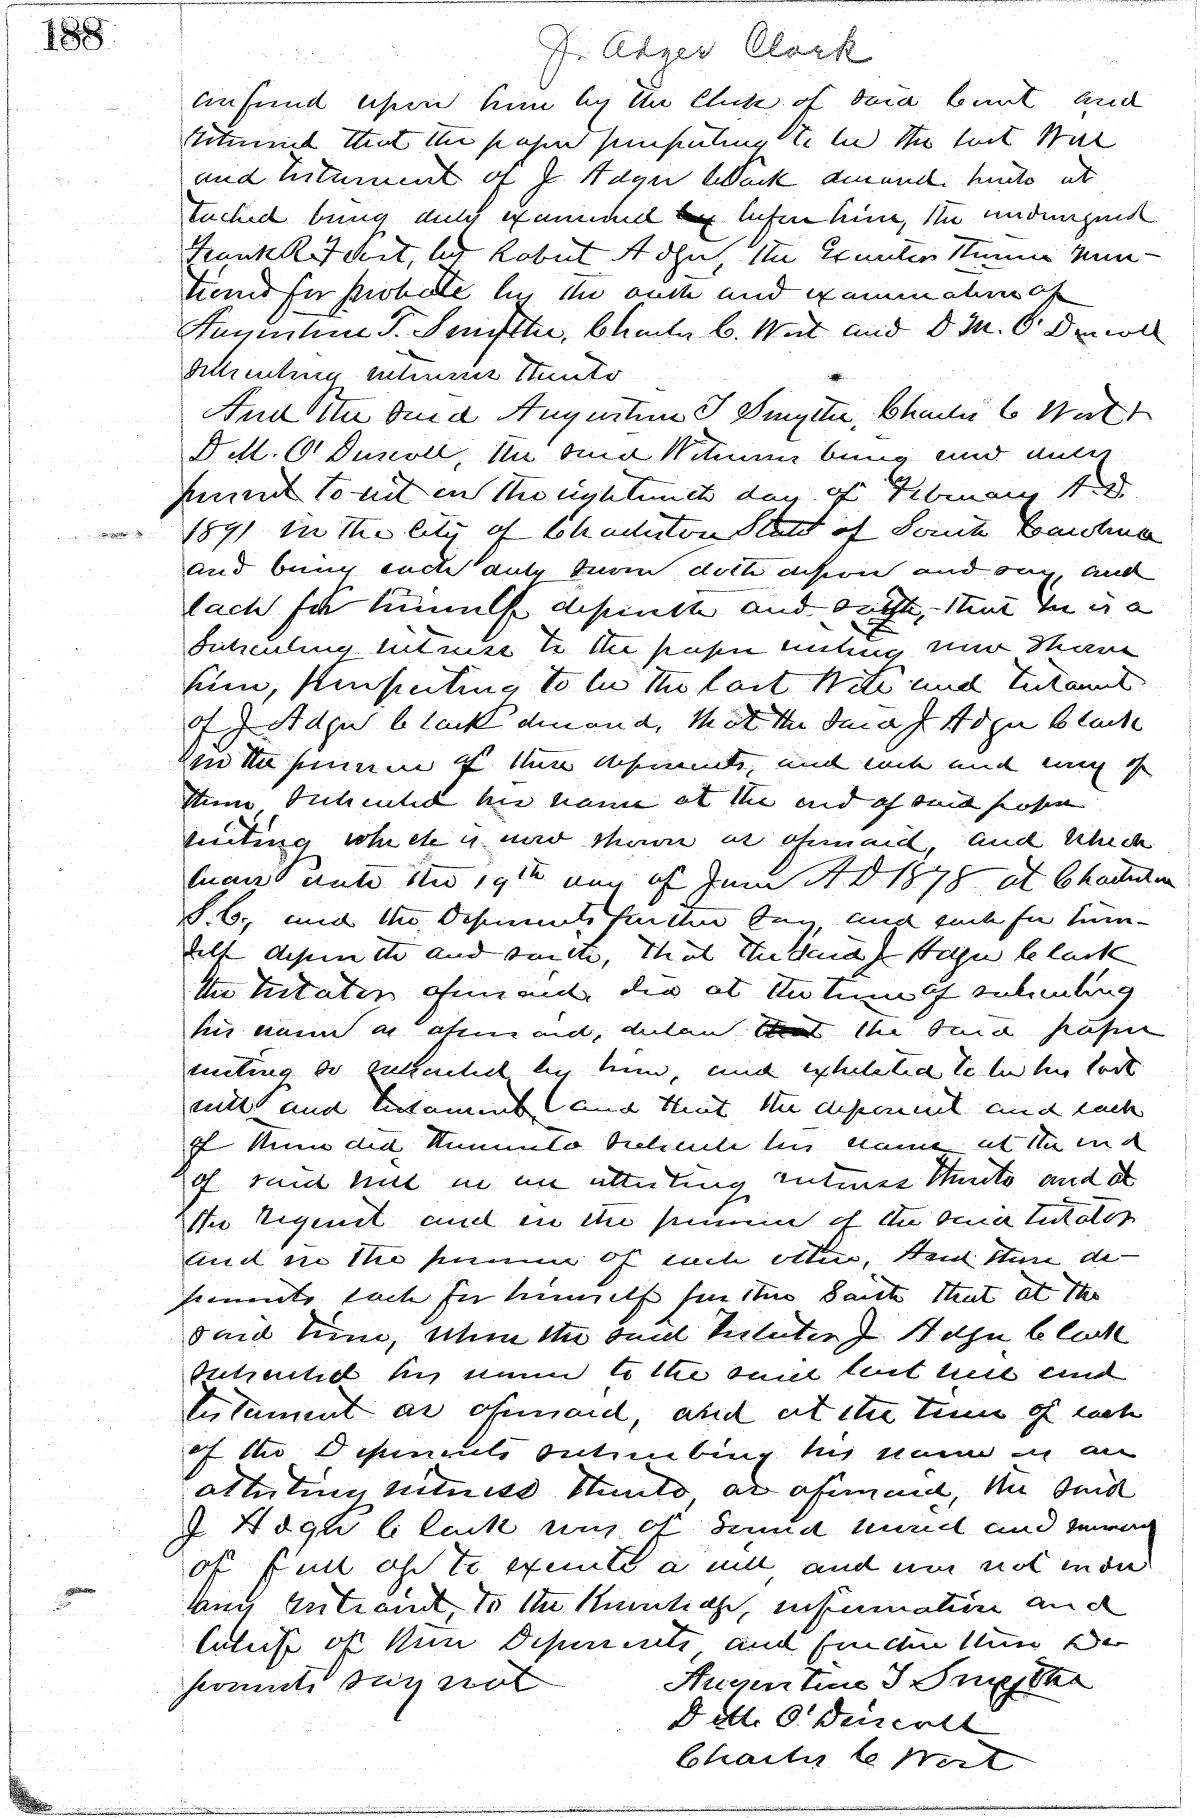 188
J. Adger Clark
conferred upon him by the Clerk of said Court and
returned that the paper purporting to be the last Will
and testament of J Adger Clark deceased hereto at
tached being duly examined by before him, the undersigned
Frank R. Frost, by Robert Adger, the Executor therein men-
tioned for probate by the oath and examination of
Augustine T. Smythe, Charles C. West and D M. O'Driscoll
subscribing witnesses thereto
And the said Augustine T Smythe, Charles C West &
D M. O'Driscoll, the said Witnesses being now duly
present to wit on the eighteenth day of February A.D.
1891 in the City of Charleston State of South Carolina
and being each duly sworn doth depose and say, and
each for himself deposeth and saith, that he is a
Subscribing witness to the paper writing now shown
him, purporting to be the last Will and testament
of J Adger Clark deceased, that the said J Adger Clark
in the presence of these deponents, and each and every of
them, subscribed his name at the end of said paper
writing which is now shown as aforesaid, and which
bears date the 19th day of June A D 1878 at Charleston
S.C., and the Deponents further say, and each for him-
self deposeth and saith, that the said J Adger Clark
the testator aforesaid, did at the time of subscribing
his name as aforesaid, declare that the said paper
writing so subscribed by him, and exhibited to be his last
will and testament, and that the deponent and each
of them did thereunto subscribe his name at the end
of said will as an attesting witness thereto and at
the request and in the presence of the said testator
and in the presence of each other, And these de-
ponents each for himself further Saith that at the
said time, when the said Testator J Adger Clark
subscribed his name to the said last will and
testament as aforesaid, and at the time of each
of the Deponents subscribing his name as an
attesting witness thereto, as aforesaid, the said
J Adger Clark was of sound mind and memory
of full age to execute a will, and was not under
any restraint, to the knowledge, information and
belief of these Deponents, and further these De
ponents say not
Augustine T Smythe
D M. O'Driscoll
Charles C West